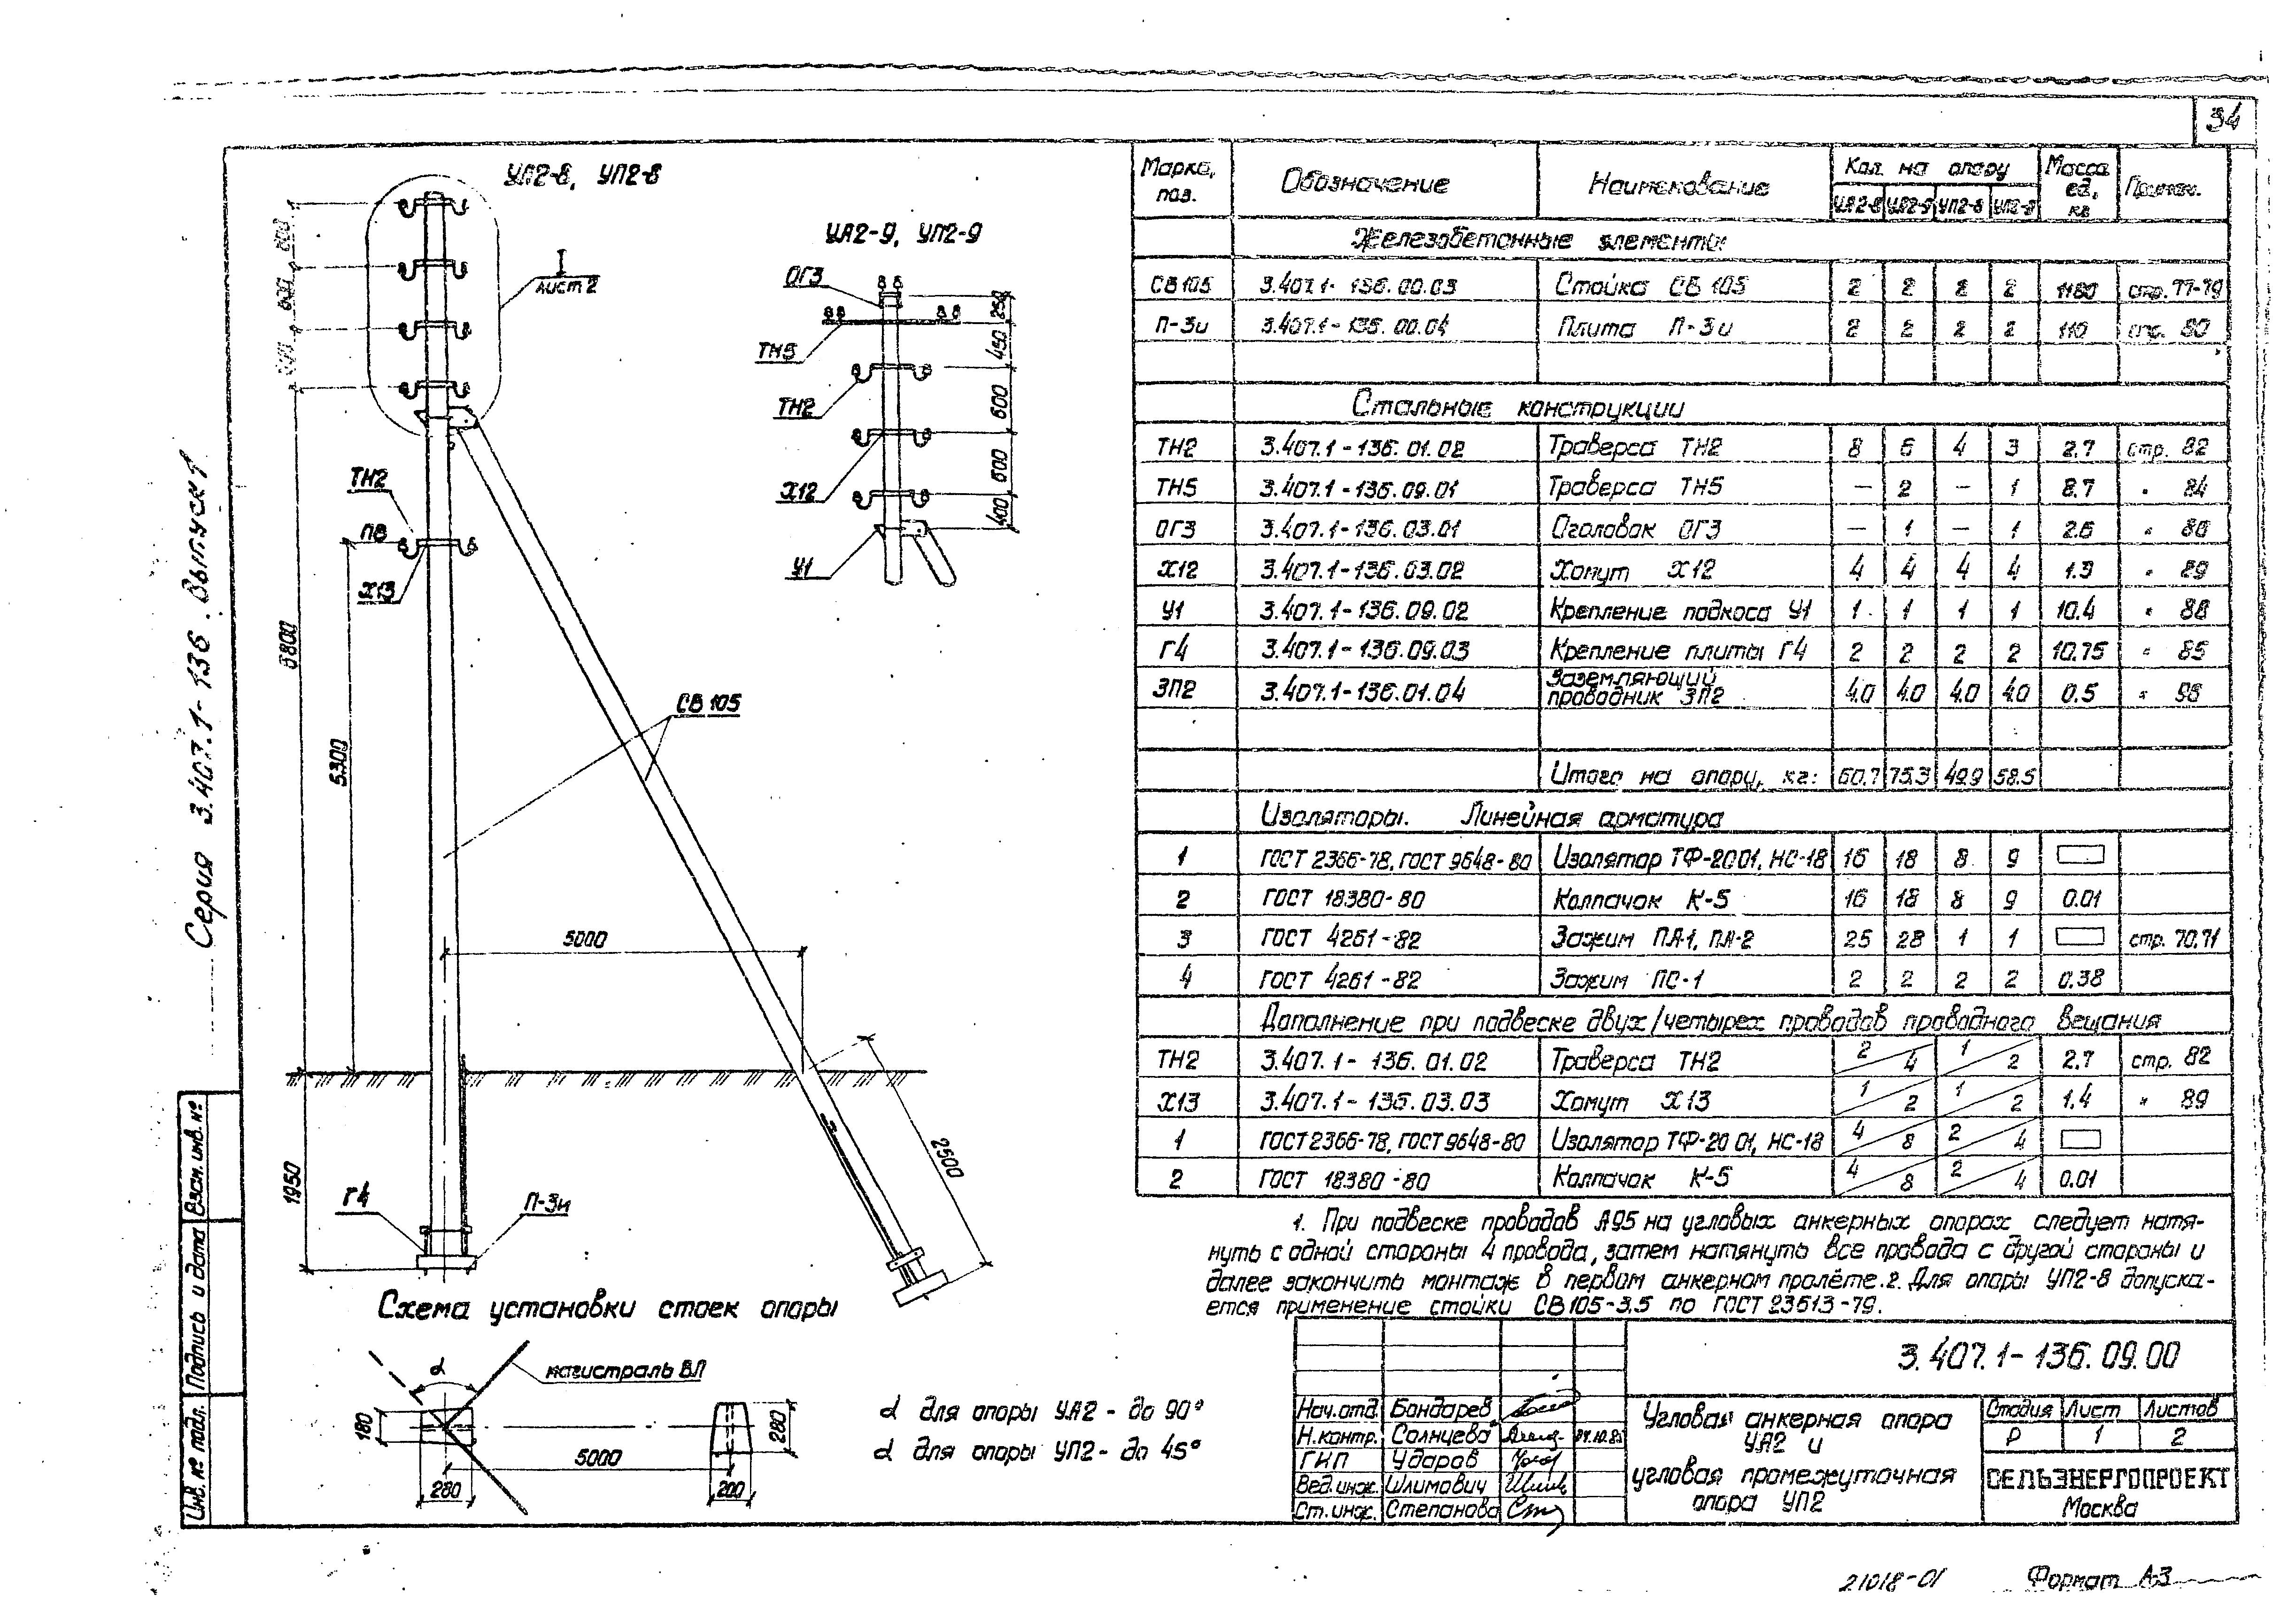 34
Серия 3.407.1-136. Выпуск 1
УА2-8, УП2-8
I
лист 2
600
600
600
ТН2
ПВ
Х13
6800
5300
1950
СВ 105
5000
2500
Г4
П-3и
УА2-9, УП2-9
ОГ3
ТН5
ТН2
Х12
У1
250
450
600
600
400
Схема установки стоек опоры
α
магистраль ВЛ
180
280
5000
200
280
α для опоры УА2 - до 90°
α для опоры УП2 - до 45°
Марка, поз. | Обозначение | Наименование | Кол. на опору | Масса ед., кг | Примеч.
УА2-8 | УА2-9 | УП2-8 | УП2-9
Железобетонные элементы
СВ 105 | 3.407.1-136.00.03 | Стойка СВ 105 | 2 | 2 | 2 | 2 | 1180 | стр. 77-79
П-3и | 3.407.1-136.00.04 | Плита П-3и | 2 | 2 | 2 | 2 | 110 | стр. 80
Стальные конструкции
ТН2 | 3.407.1-136.01.02 | Траверса ТН2 | 8 | 6 | 4 | 3 | 2.7 | стр. 82
ТН5 | 3.407.1-136.09.01 | Траверса ТН5 | — | 2 | — | 1 | 8.7 | " 84
ОГ3 | 3.407.1-136.03.01 | Оголовок ОГ3 | — | 1 | — | 1 | 2.6 | " 86
Х12 | 3.407.1-136.03.02 | Хомут Х12 | 4 | 4 | 4 | 4 | 1.3 | " 89
У1 | 3.407.1-136.09.02 | Крепление подкоса У1 | 1 | 1 | 1 | 1 | 10.4 | " 88
Г4 | 3.407.1-136.09.03 | Крепление плиты Г4 | 2 | 2 | 2 | 2 | 10.75 | " 85
ЗП2 | 3.407.1-136.01.04 | Заземляющий проводник ЗП2 | 4.0 | 4.0 | 4.0 | 4.0 | 0.5 | "
Итого на опору, кг: | 60.7 | 75.3 | 49.9 | 58.5
Изоляторы. Линейная арматура
1 | ГОСТ 2366-78, ГОСТ 9648-80 | Изолятор ТФ-2001, НС-18 | 16 | 18 | 8 | 9
2 | ГОСТ 18380-80 | Колпачок К-5 | 16 | 18 | 8 | 9 | 0.01
3 | ГОСТ 4261-82 | Зажим ПА-1, ПА-2 | 25 | 28 | 1 | 1 | стр. 70,71
4 | ГОСТ 4261-82 | Зажим ПС-1 | 2 | 2 | 2 | 2 | 0.38
Дополнение при подвеске двух/четырех проводов проводного вещания
ТН2 | 3.407.1-136.01.02 | Траверса ТН2 | 2/4 | 1/2 | 2.7 | стр. 82
Х13 | 3.407.1-136.03.03 | Хомут Х13 | 1/2 | 1/2 | 1.4 | " 89
1 | ГОСТ 2366-78, ГОСТ 9648-80 | Изолятор ТФ-20 01, НС-18 | 4/8 | 2/4
2 | ГОСТ 18380-80 | Колпачок К-5 | 4/8 | 2/4 | 0.01
1. При подвеске проводов А95 на угловых анкерных опорах следует натя-
нуть с одной стороны 4 провода, затем натянуть все провода с другой стороны и
далее закончить монтаж в первом анкерном пролёте. 2. Для опоры УП2-8 допуска-
ется применение стойки СВ105-3.5 по ГОСТ 23613-79.
3.407.1-136.09.00
Нач.отд. Бондарев
Н.контр. Солнцева
ГИП Ударов
Вед.инж. Шлимович
Ст.инж. Степанова
Угловая анкерная опора
УА2 и
угловая промежуточная
опора УП2
Стадия | Лист | Листов
Р | 1 | 2
СЕЛЬЭНЕРГОПРОЕКТ
Москва
Взам. инв. №
Подпись и дата
Инв. № подл.
21018-01
Формат А3